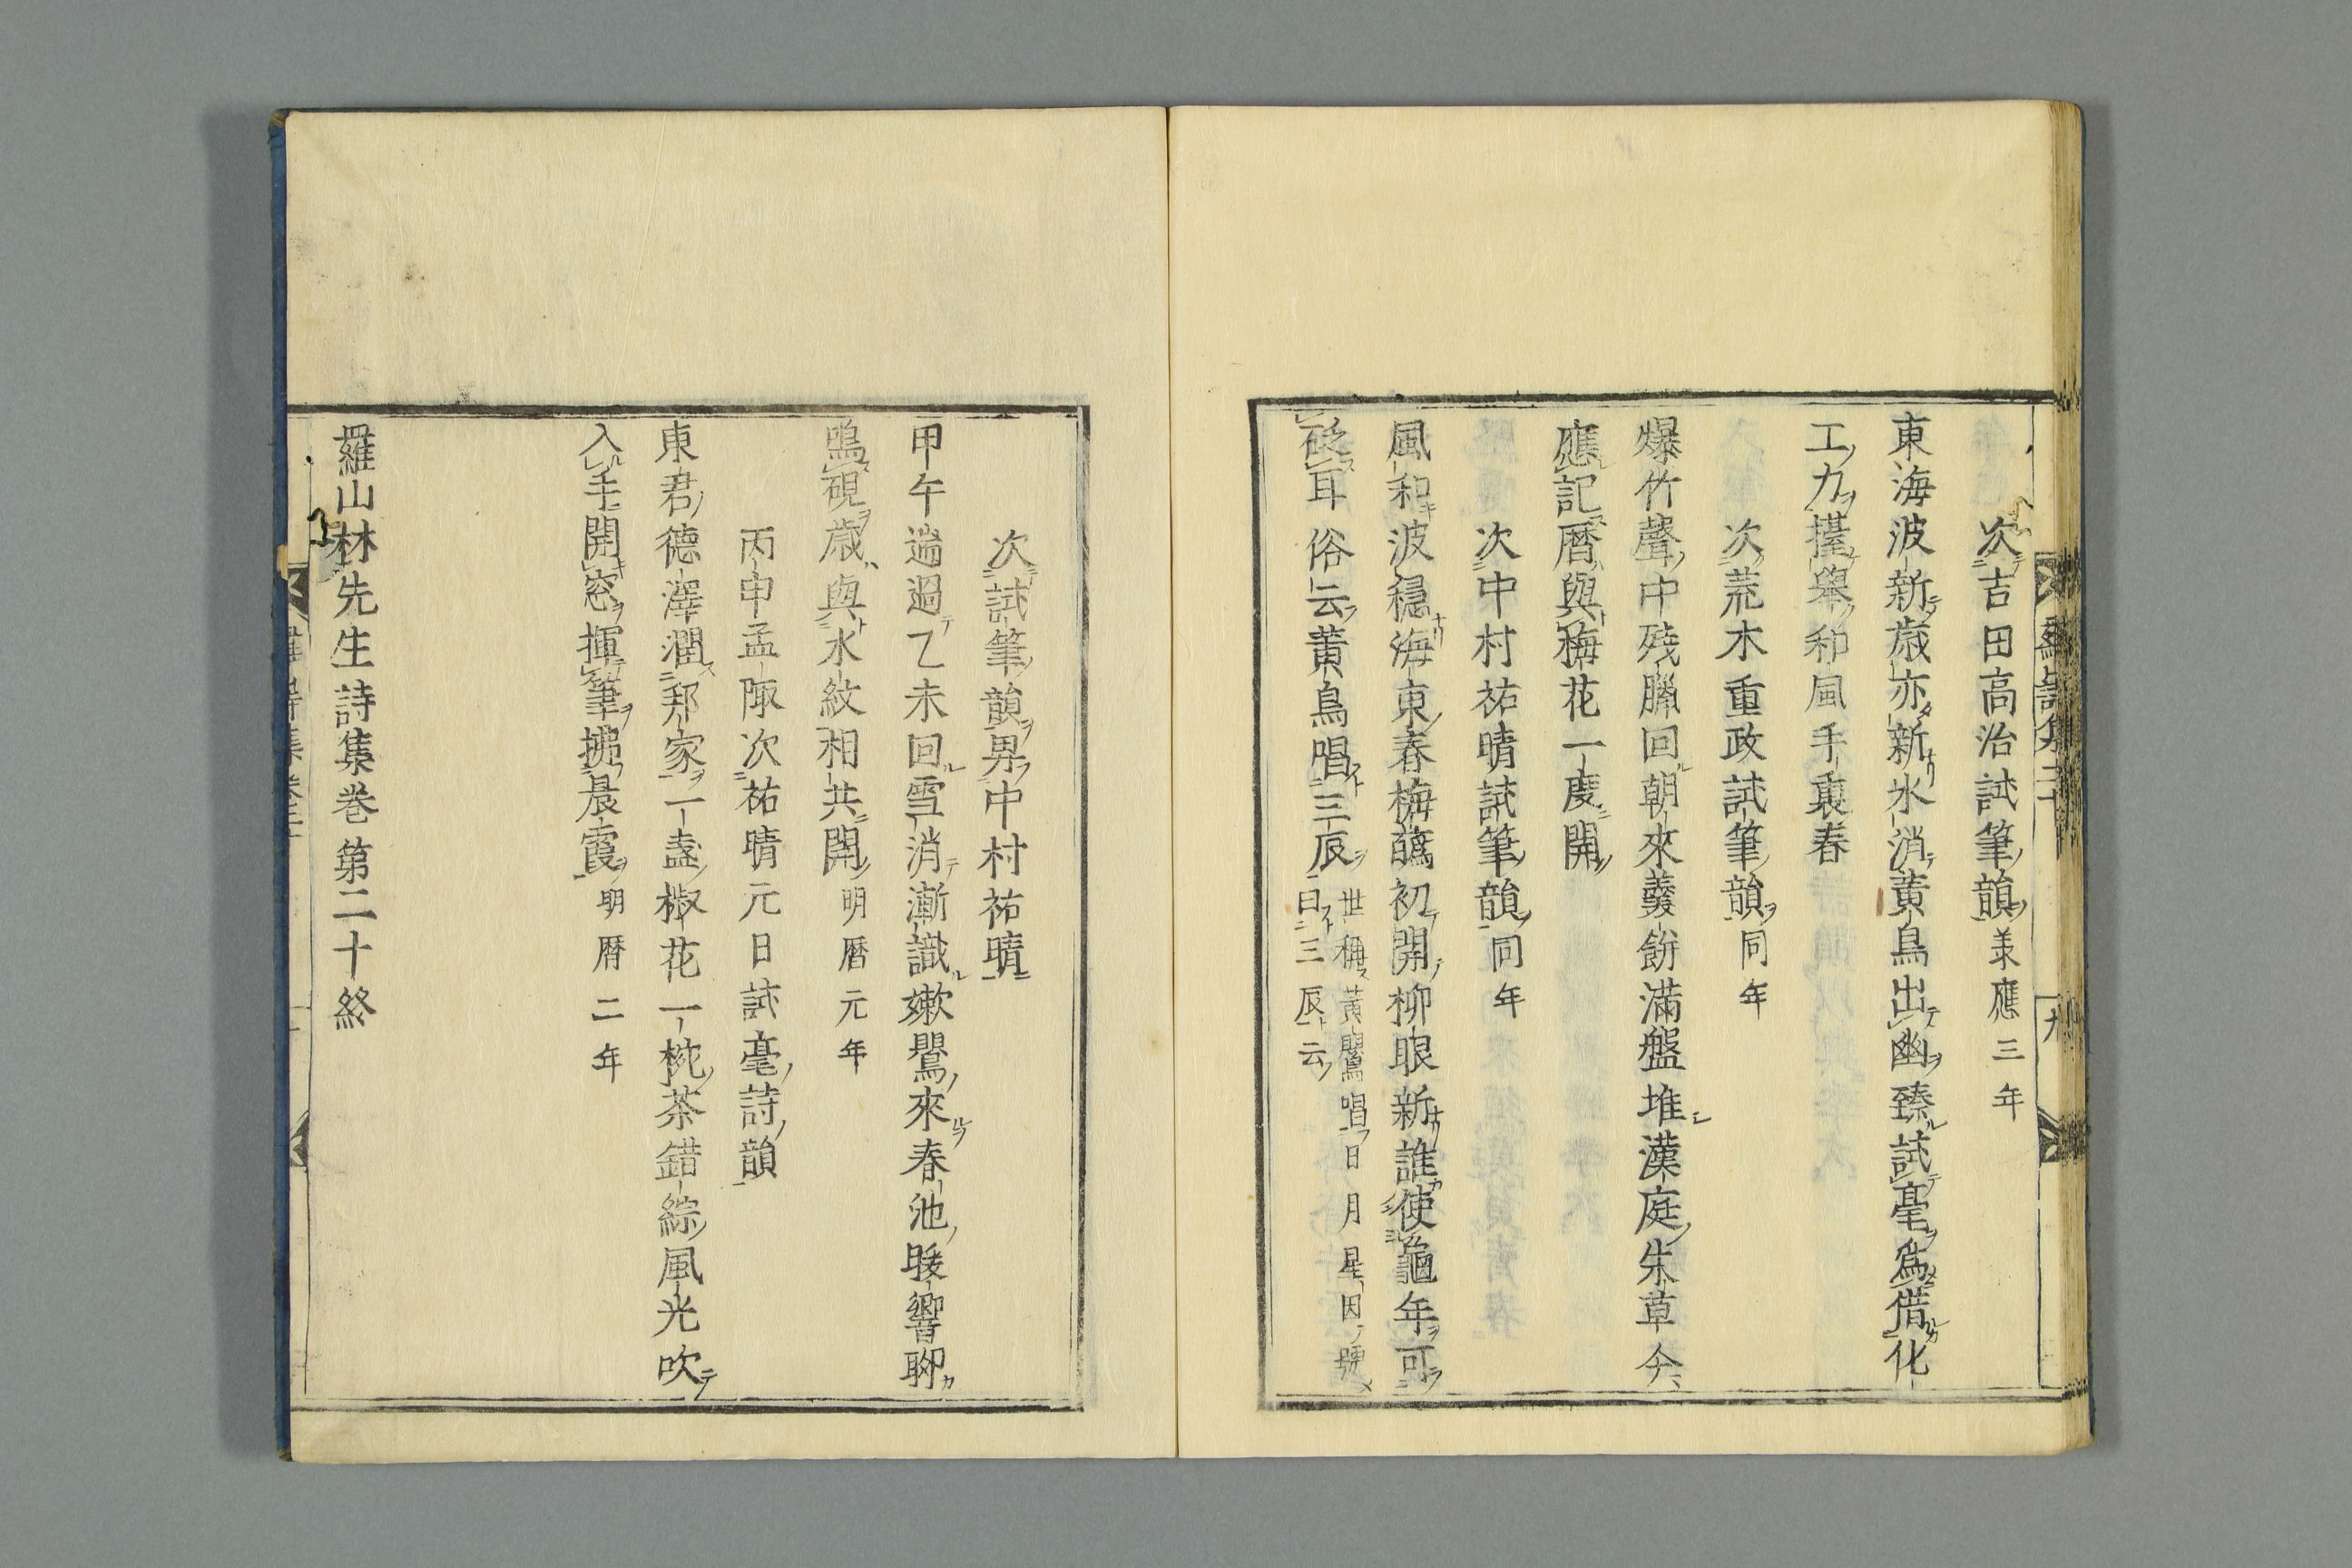 次吉田高治試筆韻 羕應三年
東海波新歳亦新氷消黃鳥出幽臻試毫爲借化
工力擡舉和風手裏春
次荒木重政試筆韻 同年
爆竹聲中殘臘回朝來羹餅滿盤堆漢庭朱草今
應記曆與梅花一度開
次中村祐晴試筆韻 同年
風和波穩海東春梅蘤初開柳眼新誰使龜年可
砭耳俗云黃鳥唱三辰 世稱黃鸎唱日月星因號
曰三辰云
次試筆韻畀中村祐晴
甲午遄過乙未回雪消漸識嫰鸎來春池暖響聊
鳴硯歲與水紋相共開 明曆元年
丙申孟陬次祐晴元日試毫詩韻
東君德澤潤邦家一盞椒花一椀茶錯綜風光吹
入手開窓揮筆拂晨霞 明曆二年
羅山林先生詩集卷第二十終